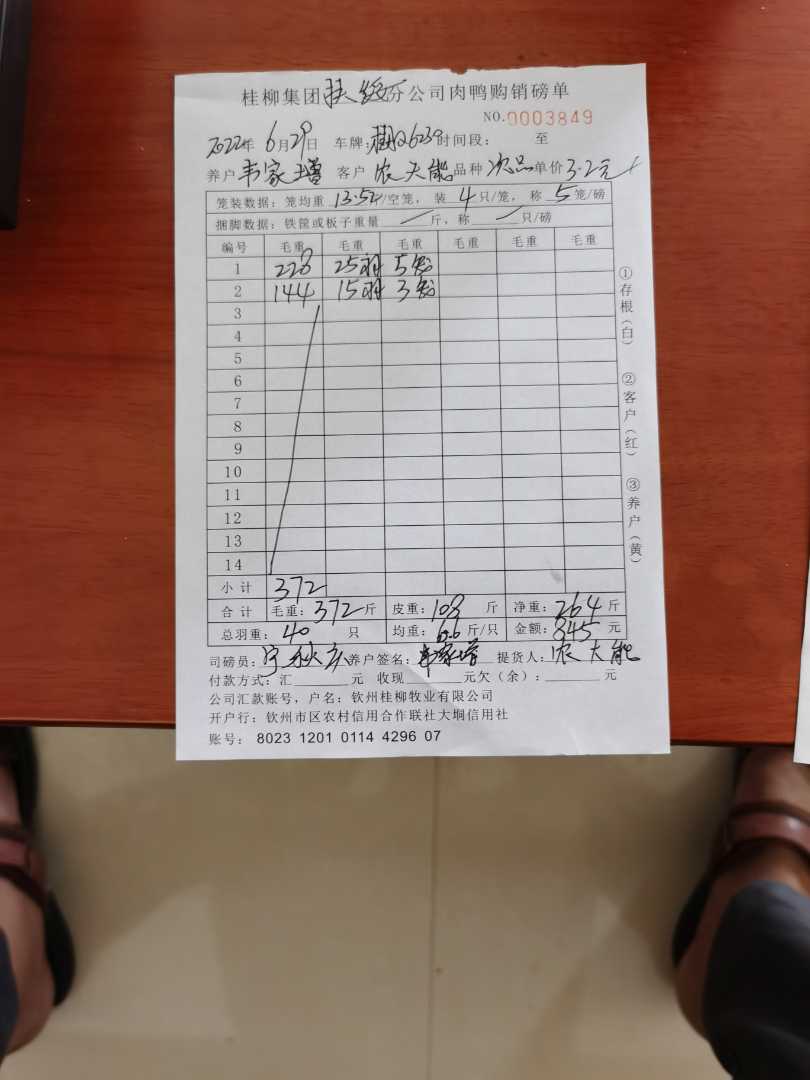 桂柳集团扶绥分公司肉鸭购销磅单
NO.0003849
2022年 6月29日 车牌: 时间段: 至
养户 韦家增 客户 农大能 品种 次品 单价 3.2元
笼装数据: 笼均重 13.52/空笼, 装 4 只/笼, 称 5 笼/磅
捆脚数据: 铁筐或板子重量 / 斤, 称 / 只/磅
编号 毛重 毛重 毛重 毛重 毛重 毛重
1 228 25羽 5笼
2 144 15羽 3笼
3
4
5
6
7
8
9
10
11
12
13
14
小计 372
合计 毛重: 372 斤 皮重: 108 斤 净重: 264 斤
总羽重: 40 只 均重: 6.6 斤/只 金额: 845 元
司磅员: 养户签名: 韦家增 提货人: 农大能
付款方式: 汇 元 收现 元欠(余): 元
公司汇款账号, 户名: 钦州桂柳牧业有限公司
开户行: 钦州市区农村信用合作联社大垌信用社
账号: 8023 1201 0114 4296 07
①存根(白)
②客户(红)
③养户(黄)